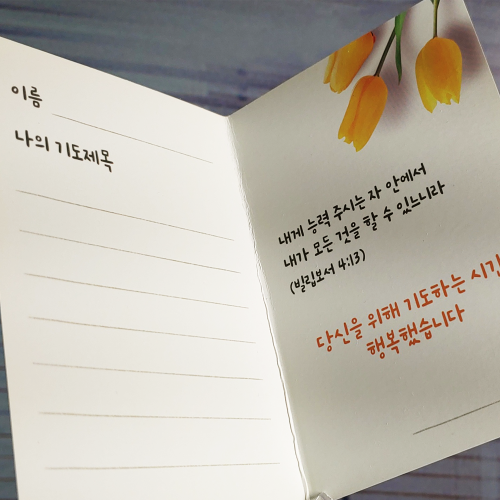 이름
나의 기도제목
내게 능력 주시는 자 안에서
내가 모든 것을 할 수 있느니라
(빌립보서 4:13)
당신을 위해 기도하는 시간
행복했습니다